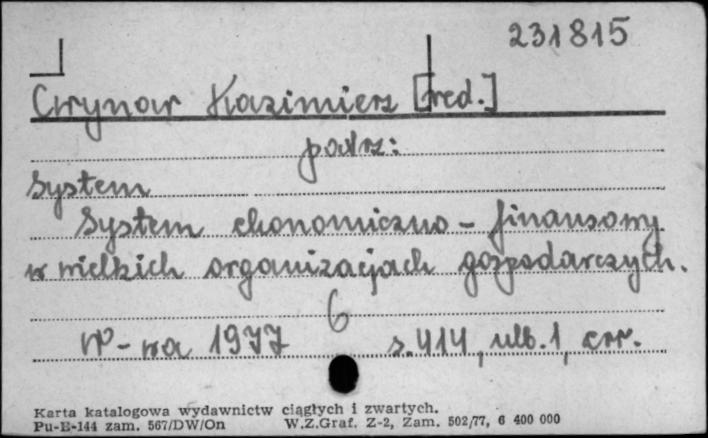 231815
Cwynar Kazimierz [red.]
patrz:
System
System ekonomiczno - finansowy
w wielkich organizacjach gospodarczych.
6
W-wa 1977 s. 414, ulb. 1, err.
Karta katalogowa wydawnictw ciągłych i zwartych.
Pu-B-144 zam. 567/DW/On W.Z.Graf. Z-2, Zam. 502/77, 6 400 000